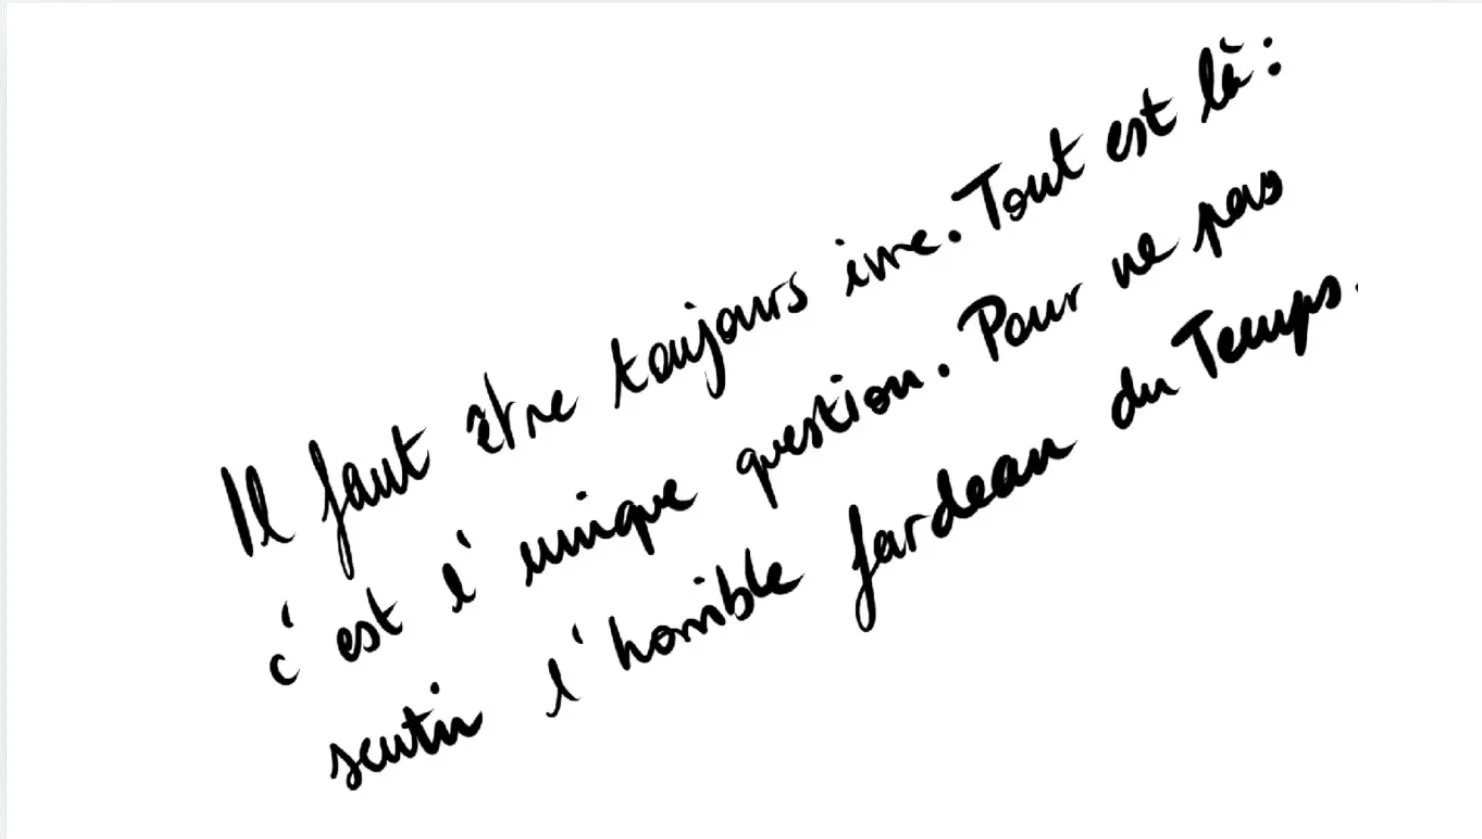 Il faut être toujours ivre. Tout est là :
c'est l'unique question. Pour ne pas
sentir l'horrible fardeau du Temps.